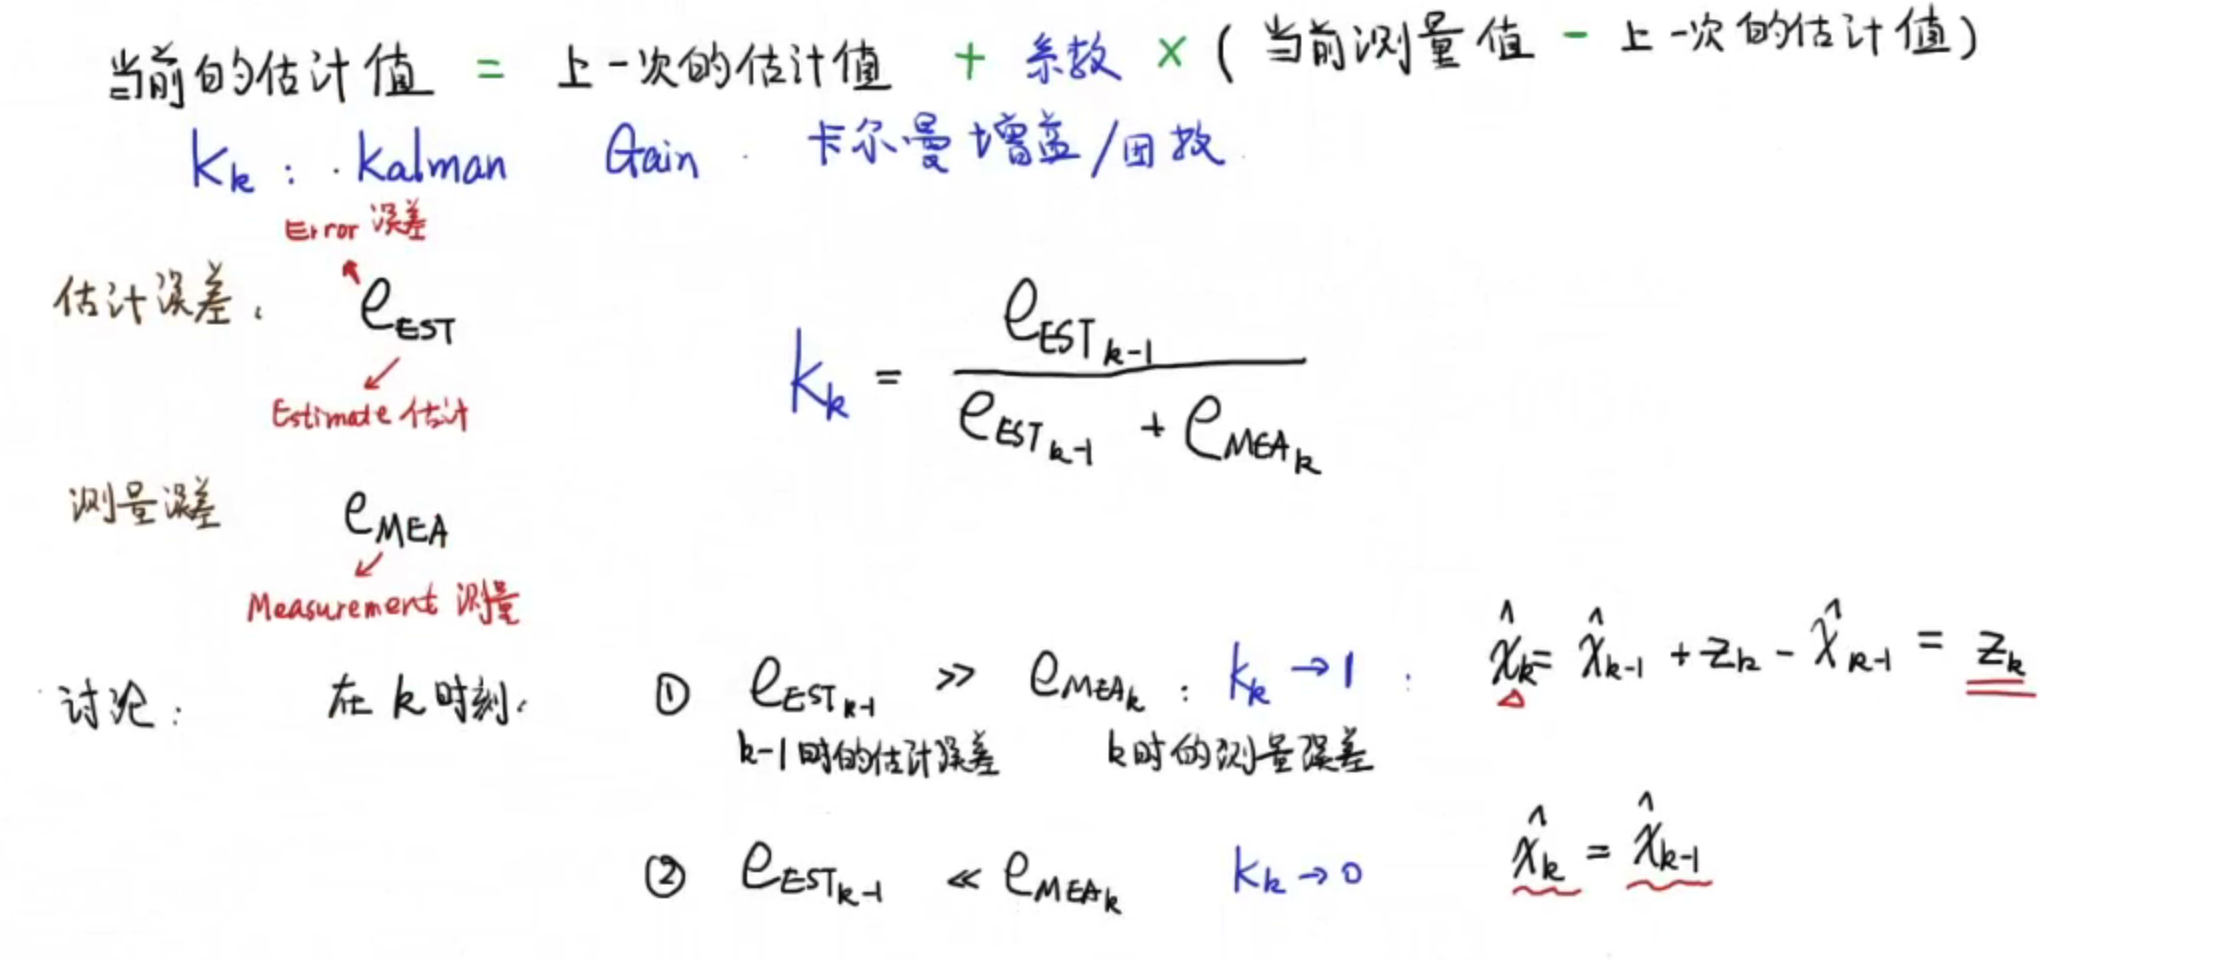 当前的估计值 = 上一次的估计值 + 系数 × (当前测量值 - 上一次的估计值)
Kₖ : Kalman Gain 卡尔曼增益/因数
Error 误差
估计误差: e_EST
Estimate 估计
Kₖ = e_EST_{k-1} / (e_EST_{k-1} + e_MEA_k)
测量误差 e_MEA
Measurement 测量
讨论: 在k时刻. ① e_EST_{k-1} >> e_MEA_k : Kₖ → 1 : x̂ₖ = x̂ₖ₋₁ + zₖ - x̂ₖ₋₁ = zₖ
k-1时的估计误差 k时的测量误差
② e_EST_{k-1} << e_MEA_k Kₖ → 0 x̂ₖ = x̂ₖ₋₁